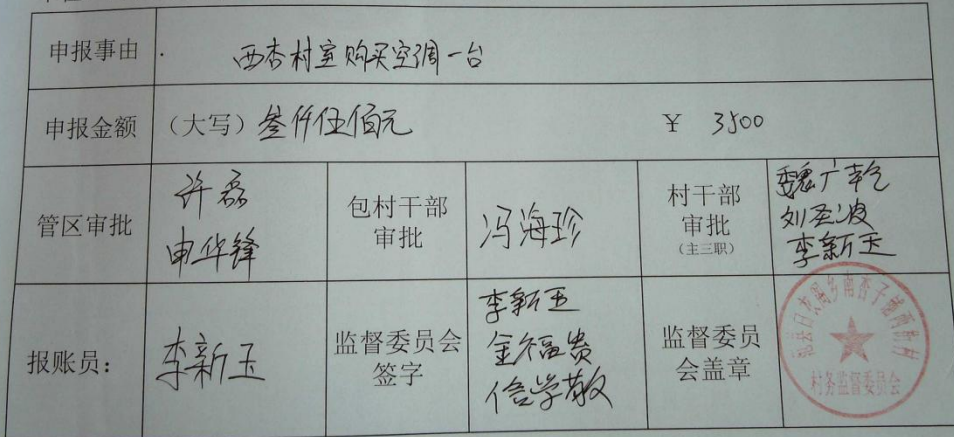 申报事由
西杏村室购买空调一台
申报金额
（大写）叁仟伍佰元
¥ 3500
管区审批
许磊
申华锋
包村干部
审批
冯海珍
村干部
审批
（主三职）
魏广乾
刘圣波
李新玉
报账员：
李新玉
监督委员会
签字
李新玉
金福贵
信学敬
监督委员
会盖章
村务监督委员会